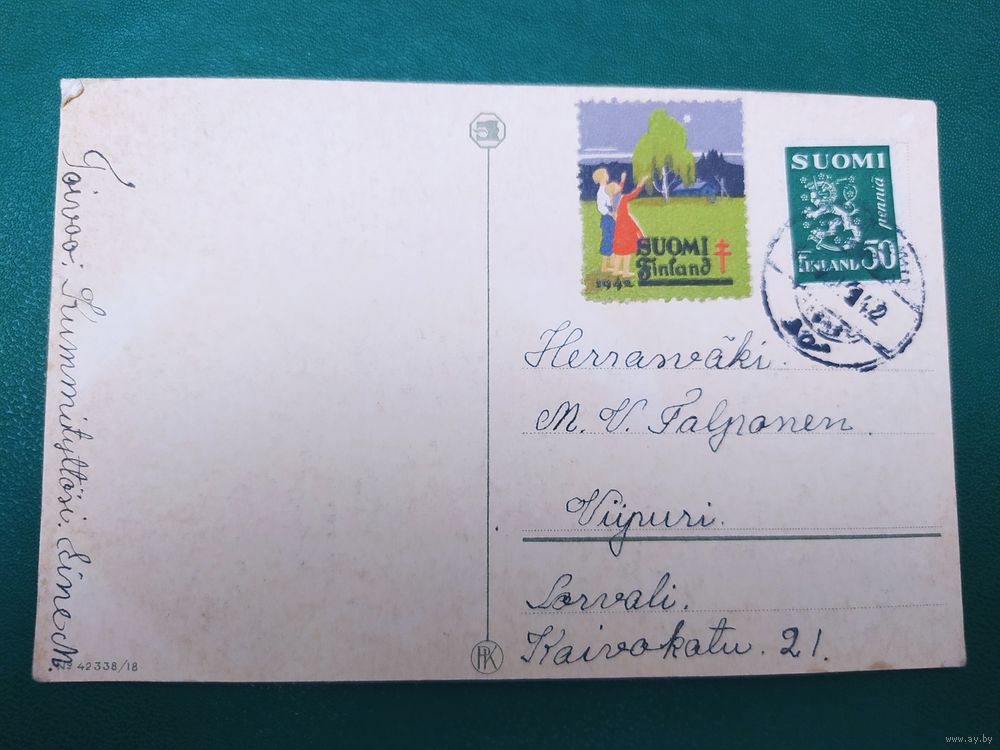 Toivoo; Kummityttösi. Eine N.
SUOMI
Finland
1942
SUOMI
pennia
FINLAND 50
42
Herranväki.
M. V. Talponen.
Viipuri.
Sorvali.
Kaivokatu. 21.
42338/18
HK
www.ay.by